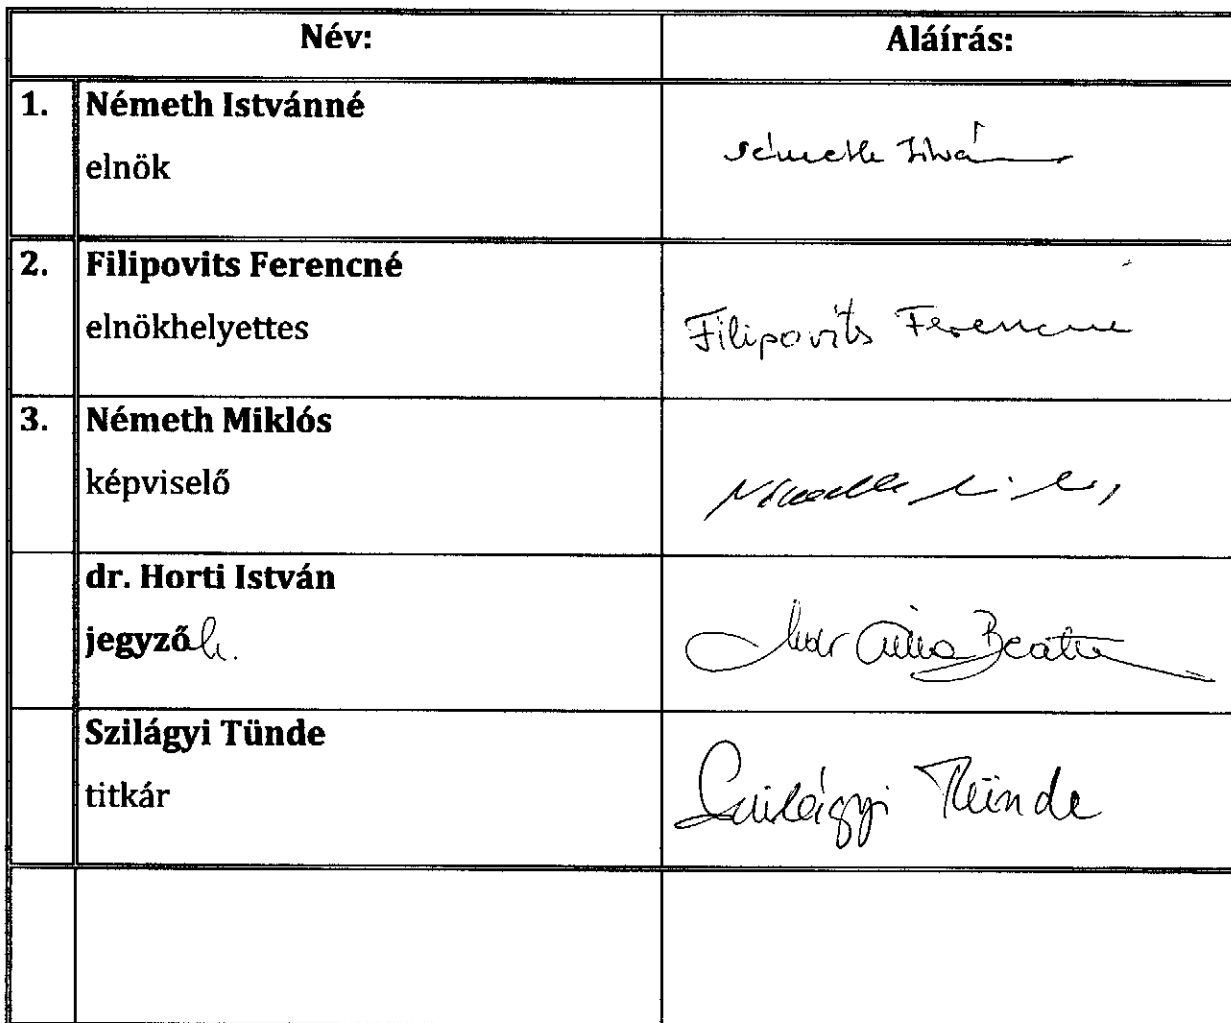 Név: Aláírás:
1. Németh Istvánné
elnök
Németh István
2. Filipovits Ferencné
elnökhelyettes
Filipovits Ferencné
3. Németh Miklós
képviselő
Németh
dr. Horti István
jegyző h.
Beatrix
Szilágyi Tünde
titkár
Szilágyi Tünde